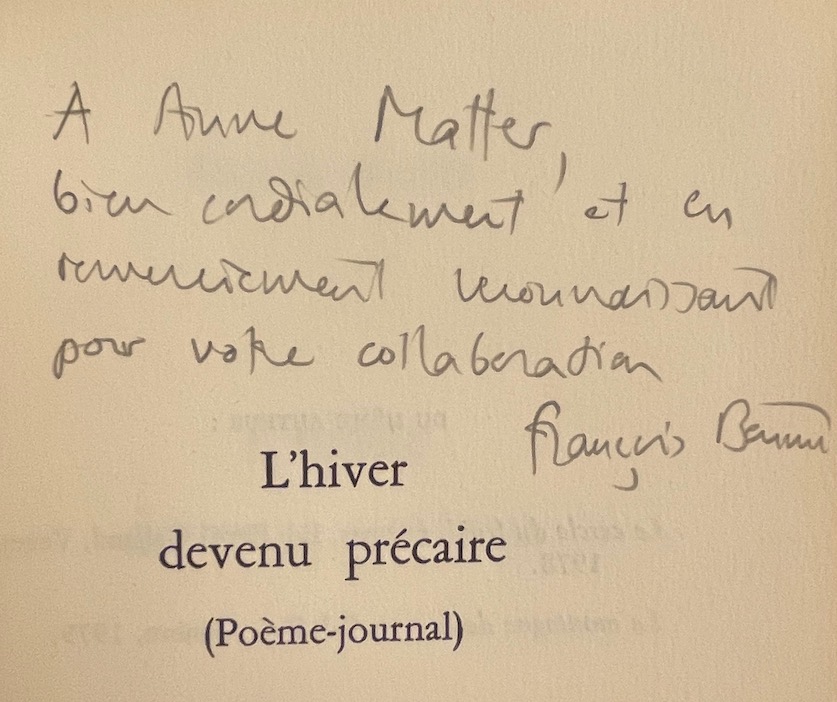 A Anne Matter,
bien cordialement et en
remerciement reconnaissant
pour votre collaboration
François
L'hiver
devenu précaire
(Poème-journal)